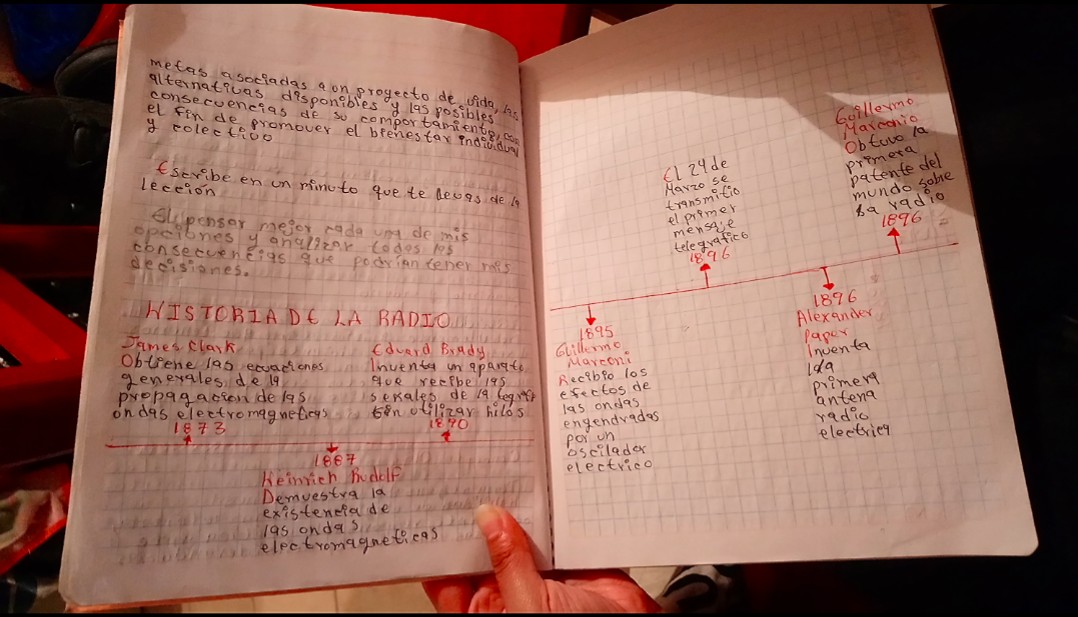 metas asociadas a un proyecto de vida, las
alternativas disponibles y las posibles
consecuencias de su comportamiento, con
el fin de promover el bienestar individual
y colectivo
Escribe en un minuto que te llevas de la
lección
El pensar mejor cada una de mis
opciones y analizar todas las
consecuencias que podrían tener mis
decisiones.
HISTORIA DE LA RADIO
James Clark
Obtiene las ecuaciones
generales de la
propagacion de las
ondas electromagneticas
1873
1887
Heinrich Rudolf
Demuestra la
existencia de
las ondas
electromagneticas
Eduard Brady
Inventa un aparato
que recibe las
señales de la
sin utilizar hilos
1890
1895
Guillermo
Marconi
Recibio los
efectos de
las ondas
engendradas
por un
oscilador
electrico
El 24 de
Marzo se
transmitio
el primer
mensaje
telegrafico
1896
1896
Alexander
Papov
Inventa
la
primera
antena
radio
electrica
Guillermo
Marconio
Obtuvo la
primera
patente del
mundo sobre
La radio
1896